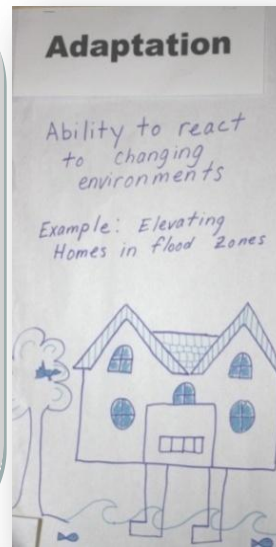 Adaptation
Ability to react
to changing
environments
Example: Elevating
Homes in flood zones